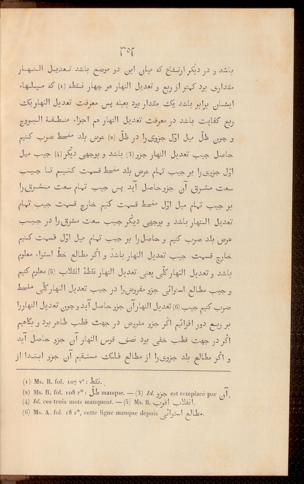 ٣٥٢
باشد و در دیگر ارتفاع که میان این دو موضع باشد تعدیل النهار
مقداری بود کمتر از ربع و تعدیل النهار هر چهار نقطه (1) که میلهاء
ایشان برابر باشد یک مقدار بود بعینه پس معرفت تعدیل النهار یک
ربع کفایت باشد در معرفت تعدیل النهار هم اجزاء منطقة البروج
و چون ظلّ میل اوّل جزوی را در ظلّ (2) عرض بلد منحط ضرب کنیم
حاصل جیب تعدیل النهار جزو (3) باشد و بوجهی دیگر (4) جیب میل
اوّل جزوی را بر جیب تمام عرض بلد منحط قسمت کنیم تا جیب
سعت مشرق آن جزو حاصل آید پس جیب تمام سعت مشرق را
بر جیب تمام میل اوّل منحط قسمت کنیم خارج قسمت جیب تمام
تعدیل النهار باشد و بوجهی دیگر جیب سعت مشرق را در جیب
عرض بلد ضرب کنیم و حاصل را بر جیب تمام میل اوّل قسمت کنیم
خارج قسمت جیب تعدیل النهار باشد و اگر مطالع خطّ استوا معلوم
باشد و تعدیل النهار کلّی یعنی تعدیل النهار نقطهٔ انقلاب (5) معلوم کنیم
و جیب مطالع استوائی جزو مفروض را در جیب تعدیل النهار کلّی منحط
ضرب کنیم جیب (6) تعدیل النهار آن جزو حاصل آید و چون تعدیل النهار را
بر ربع دور افزائیم اگر جزو مفروض در جهت قطب ظاهر بود و بکاهیم
اگر در جهت قطب خفی بود نصف قوس النهار آن جزو حاصل آید
و اگر مطالع بلد جزوی را از مطالع فلک مستقیم آن جزو ابتدا از
(1) Ms. B. fol. 107 v° : نقط.
(2) Ms. B, fol. 108 r° : ظلّ manque. — (3) Id. جزو est remplacé par آن.
(4) Id. ces trois mots manquent. — (5) Ms. B.
(6) Ms. A. fol. 18 r°, cette ligne manque depuis مطالع استوائی.